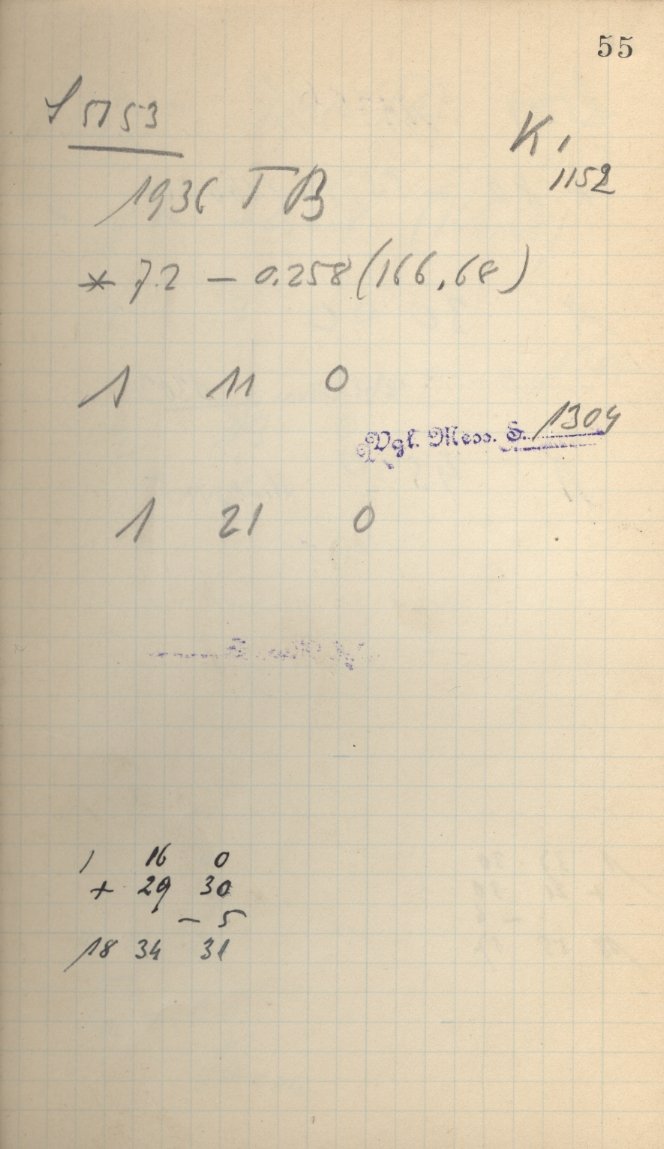 55
S 5753
K.
1152
1936 TB
* 7.2 – 0.258 (166,68)
1 11 0
Vgl. Mess. S. 1304
1 21 0
1 16 0
+ 29 30
– 5
18 34 31